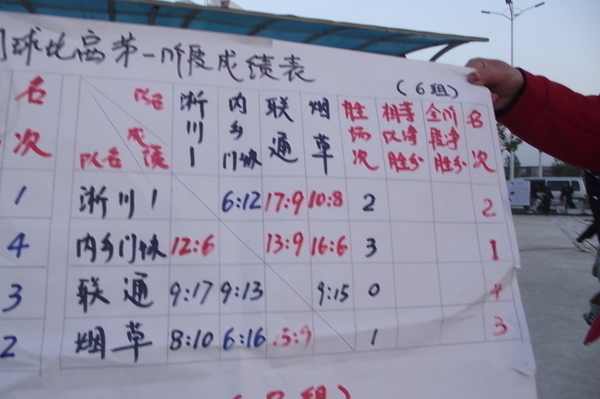 球比赛第一阶段成绩表
(6组)
名次 队名 成绩 队名 淅川1 内乡门协 联通 烟草 胜场次 净胜分 全阶段净胜分 名次
1 淅川1 6:12 17:9 10:8 2 2
4 内乡门协 12:6 13:9 16:6 3 1
3 联通 9:17 9:13 9:15 0 4
2 烟草 8:10 6:16 15:9 1 3